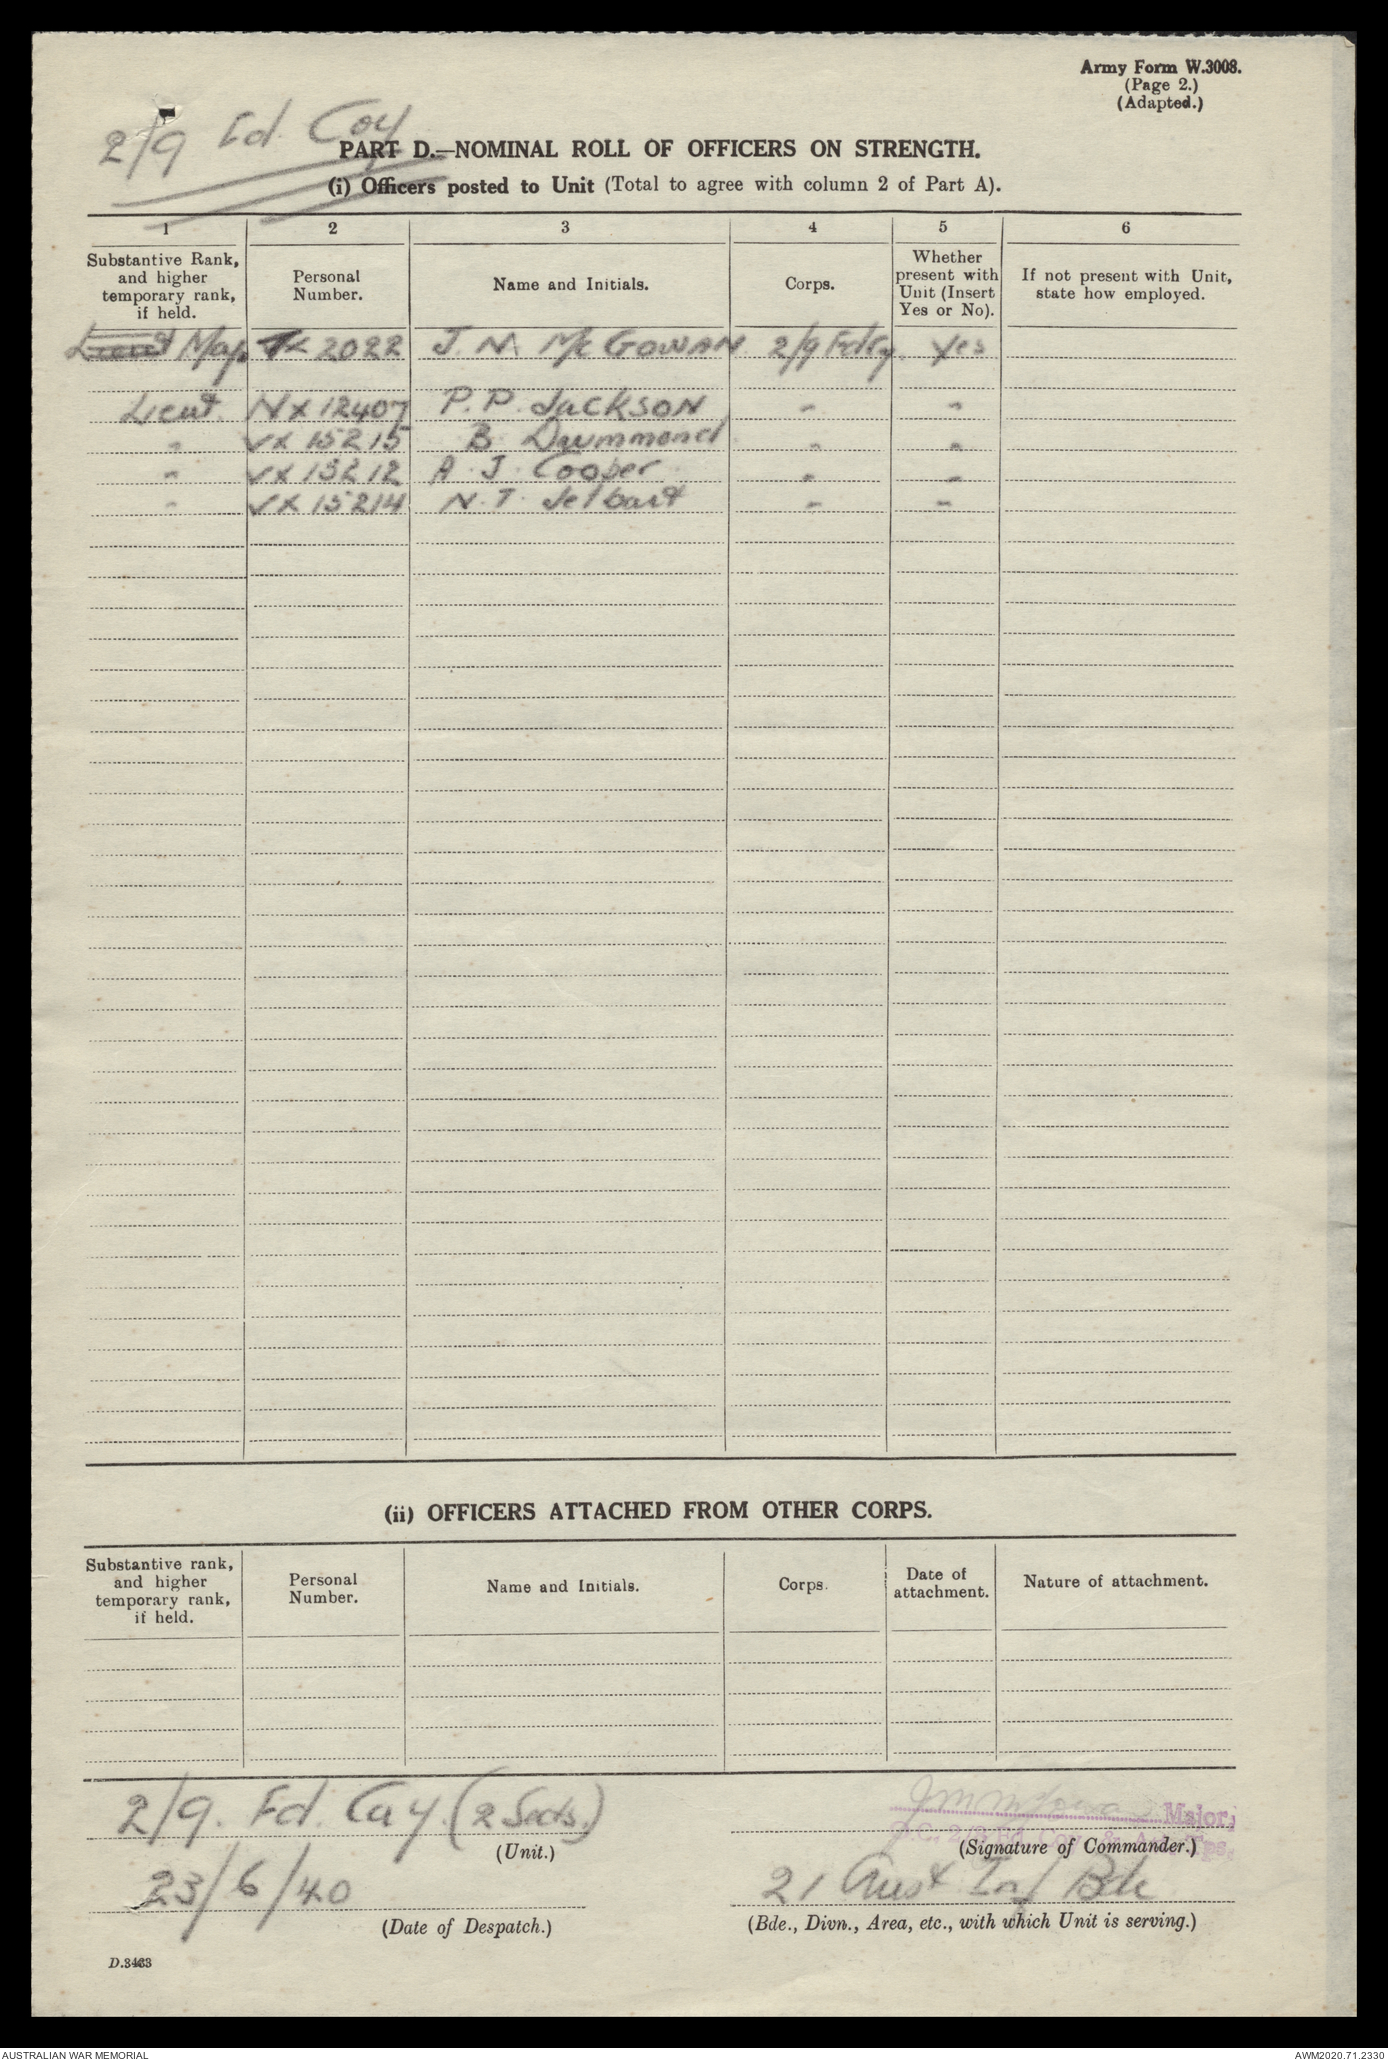 Army Form W.3008.
(Page 2.)
(Adapted.)
2/9 Fd. Coy
PART D.—NOMINAL ROLL OF OFFICERS ON STRENGTH.
(i) Officers posted to Unit (Total to agree with column 2 of Part A).
1 2 3 4 5 6
Substantive Rank, and higher temporary rank, if held. Personal Number. Name and Initials. Corps. Whether present with Unit (Insert Yes or No). If not present with Unit, state how employed.
Lieut Maj. TX 2022 J. M. McGOWAN. 2/9 Fd Cy. Yes
Lieut. NX 12407 P. P. JACKSON " "
" VX 15215 B Drummond " "
" VX 15212 A. J. Cooper " "
" VX 15214 N. T. Jelbart " "
(ii) OFFICERS ATTACHED FROM OTHER CORPS.
Substantive rank, and higher temporary rank, if held. Personal Number. Name and Initials. Corps. Date of attachment. Nature of attachment.
2/9. Fd. Coy (2 Secs.)
(Unit.)
Major,
O.C., 2/9 Fd. Coy.
(Signature of Commander.)
23/6/40
(Date of Despatch.)
21 Aust Inf Bde
(Bde., Divn., Area, etc., with which Unit is serving.)
D.3463
AUSTRALIAN WAR MEMORIAL
AWM2020.71.2330